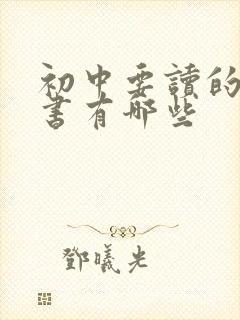 初中要讀的
書有哪些
鄧曦光